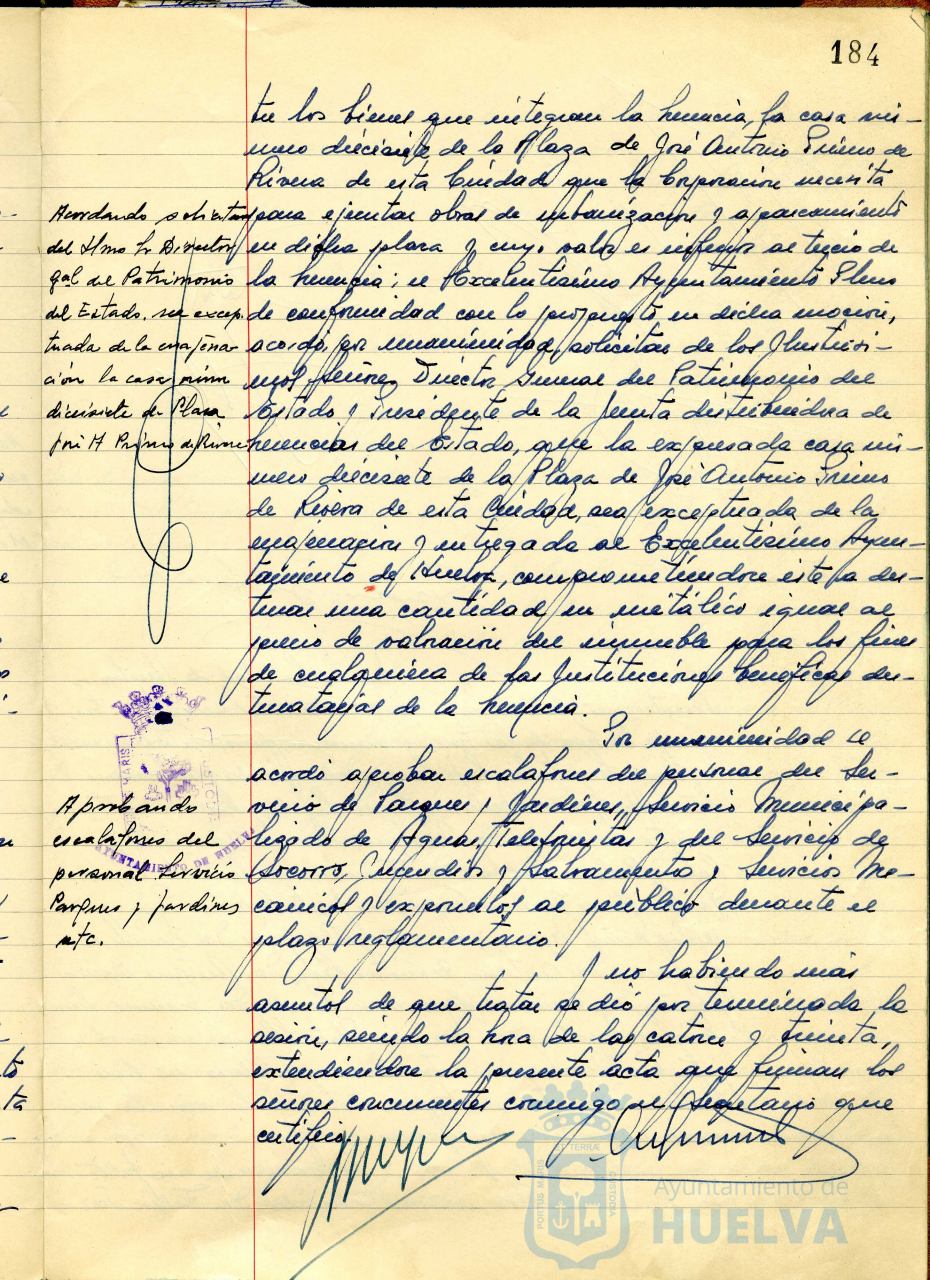 184
tre los bienes que integran la herencia, la casa nú-
mero diecisiete de la Plaza de José Antonio Primo de
Rivera de esta Ciudad que la Corporación necesita
para ejecutar obras de urbanización y aparcamiento
en dicha plaza y cuyo valor es inferior al tercio de
la herencia; el Excelentísimo Ayuntamiento Pleno
de conformidad con lo propuesto en dicha moción,
acordó, por unanimidad, solicitar de los Ilustrísi-
mos señores Director General del Patrimonio del
Estado y Presidente de la Junta distribuidora de
herencias del Estado, que la expresada casa nú-
mero diecisiete de la Plaza de José Antonio Primo
de Rivera de esta Ciudad, sea exceptuada de la
enajenación y entregada al Excelentísimo Ayun-
tamiento de Huelva, comprometiéndose éste a des-
tinar una cantidad en metálico igual al
precio de valoración del inmueble para los fines
de cualquiera de las Instituciones benéficas des-
tinatarias de la herencia.
Por unanimidad se
acordó aprobar escalafones del personal del Ser-
vicio de Parques y Jardines, Servicio Municipa-
lizado de Aguas, Telefonistas y del Servicio de
Socorro, Incendios y Salvamento y Servicios Me-
cánicos y exponerlos al público durante el
plazo reglamentario.
Y no habiendo más
asuntos de que tratar se dió por terminada la
sesión, siendo la hora de las catorce y treinta,
extendiéndose la presente acta que firman los
señores concurrentes conmigo el Secretario que
certifico.
Acordando solicitar
del Ilmo Sr Director
gral del Patrimonio
del Estado, sea excep
tuada de la enajena
ción la casa núm
diecisiete de Plaza
José A Primo de Rivera
Aprobando
escalafones del
personal Servicio
Parques y jardines
etc.
AYUNTAMIENTO DE HUELVA
PORTUS MARIS
TERRAE
CUSTODIA
Ayuntamiento de
HUELVA